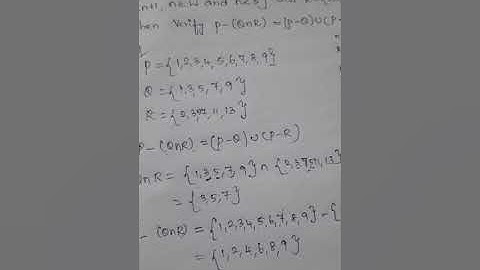 n∈W and
then verify P-(Q∩R)=(P-Q)∪(P-
P={1,2,3,4,5,6,7,8,9}
Q={1,3,5,7,9}
R={2,3,5,7,11,13}
P-(Q∩R)=(P-Q)∪(P-R)
Q∩R={1,3,5,7,9}∩{2,3,5,7,11,13}
={3,5,7}
-(Q∩R)={1,2,3,4,5,6,7,8,9}-{
={1,2,4,6,8,9}